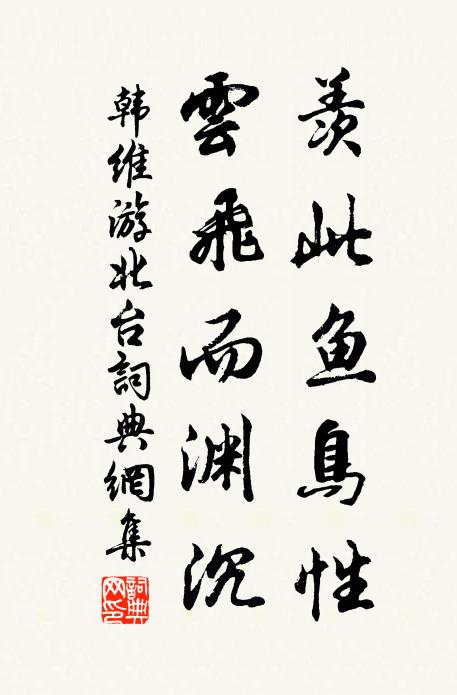 羡此鱼鳥性
雲飛而渊沉
韩维游北台詞典網集
詞典
网印